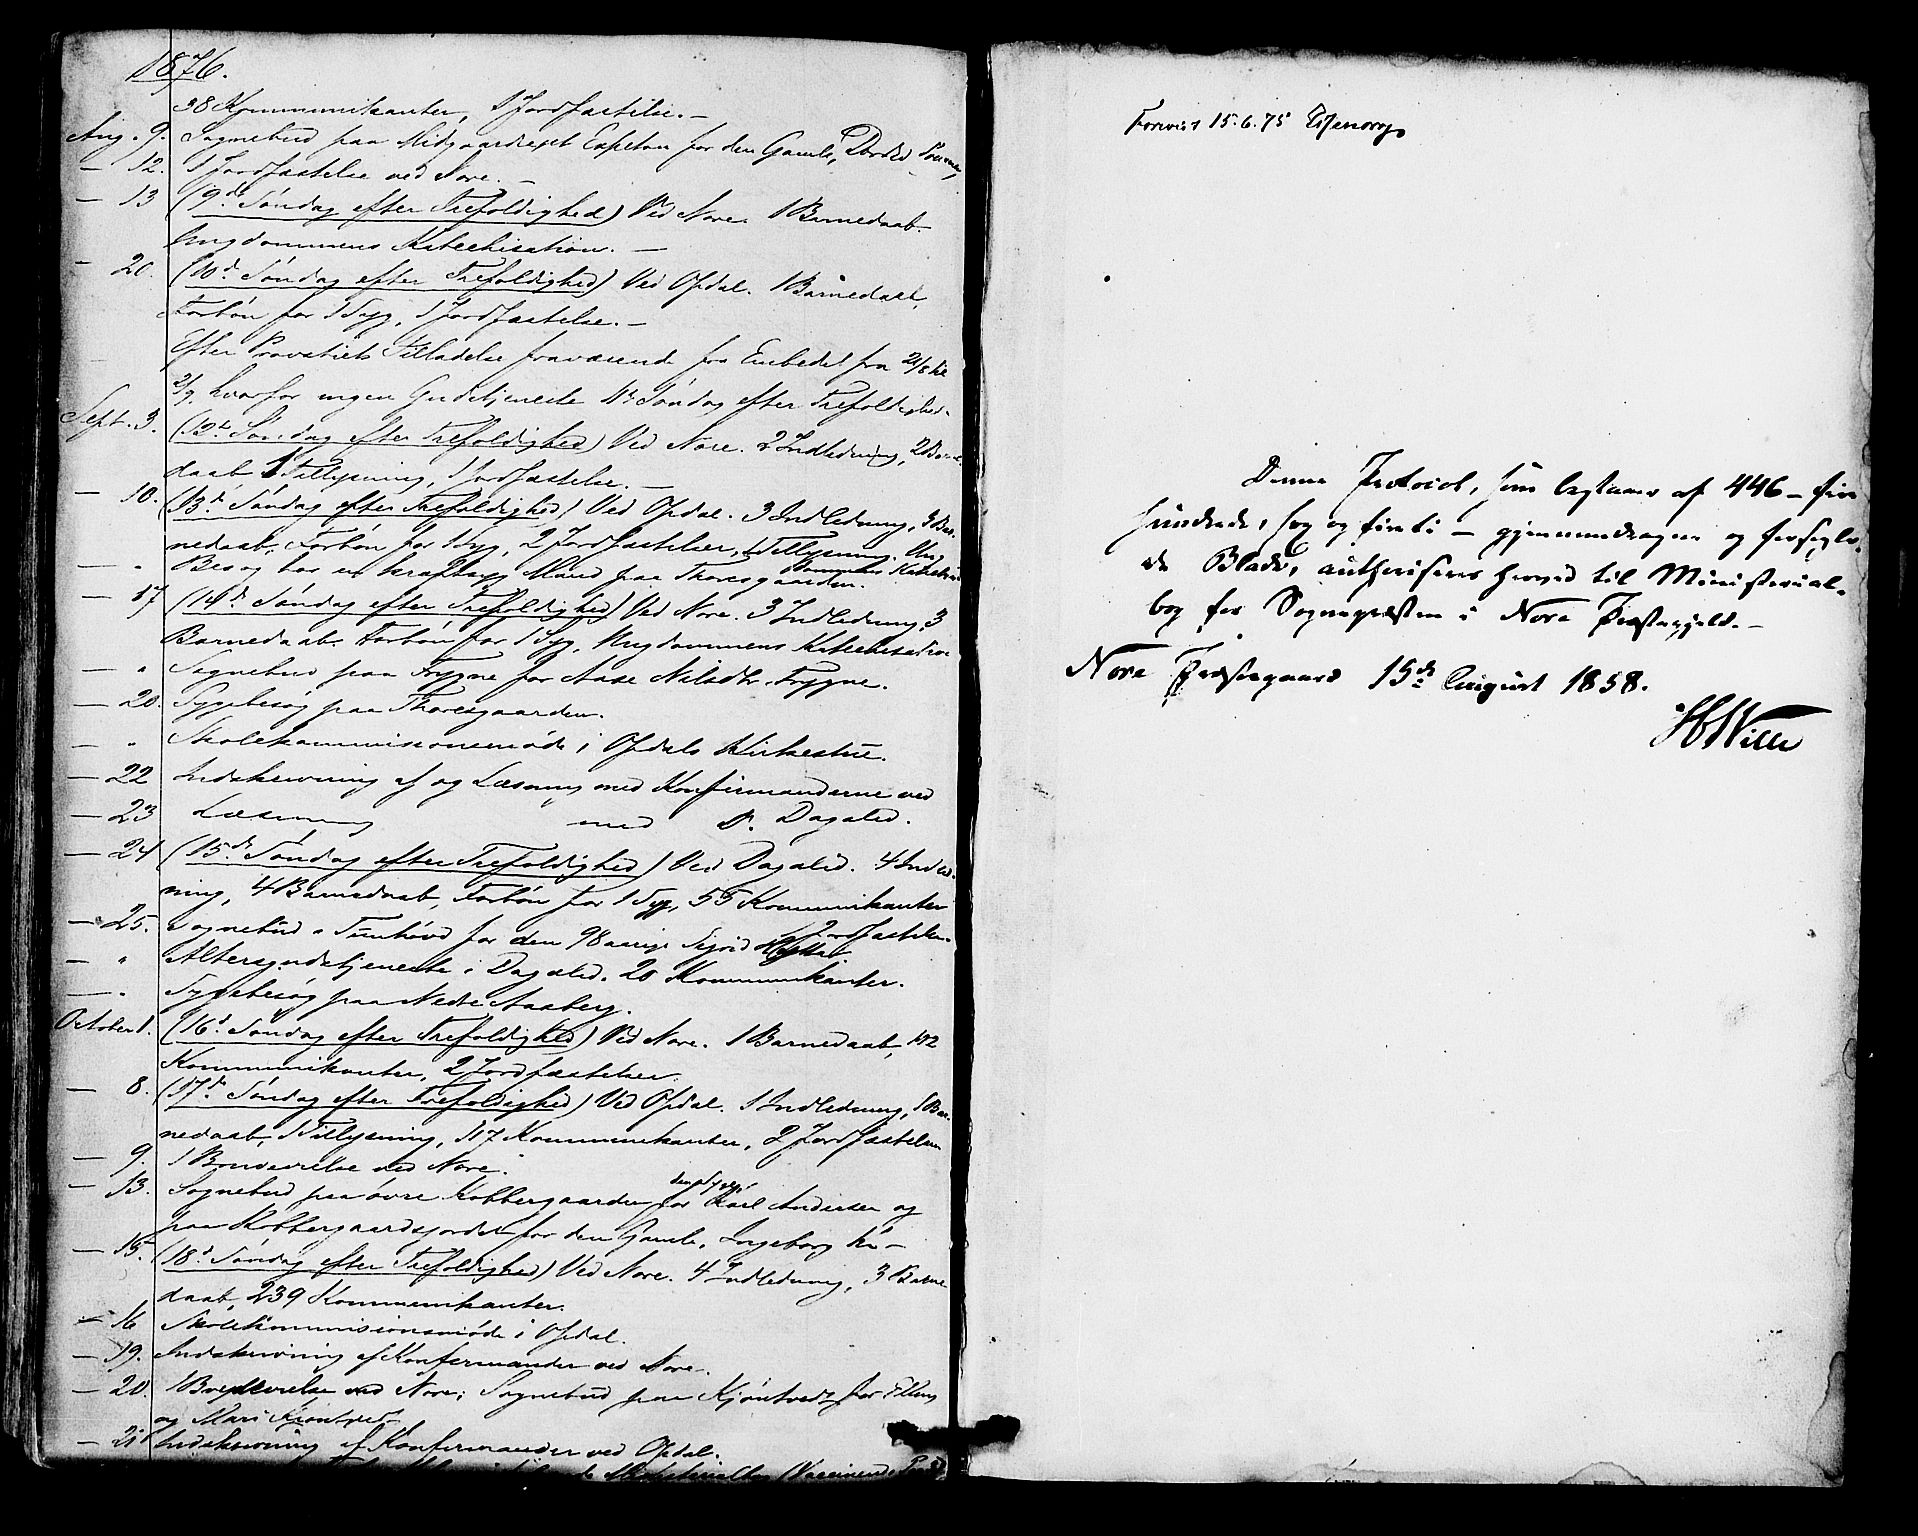 1876.
38 Kommunikanter, 1 Jordfæstelse. —
Aug. 9. Sognebud paa Midgaardsejet Expeton for den Gamle,
— 12. 1 Jordfæstelse ved Nore. —
— 13 (9de Søndag efter Trefoldighed) Ved Nore. 1 Barnedaab.
Ungdommens Katechisation. —
— 20. (10de Søndag efter Trefoldighed) Ved Opdal. 1 Barnedaab,
Forbøn for 1 Syg, 1 Jordfæstelse. —
Efter Provstiets Tilladelse fraværende fra Embedet fra 21/8 til
2/9, hvorfor ingen Gudstjeneste 11te Søndag efter Trefoldighed.
Sept. 3. (12te Søndag efter Trefoldighed) Ved Nore. 2 Indledning, 2 Barne-
daab, 1 Tillysning, 1 Jordfæstelse. —
— 10. (13de Søndag efter Trefoldighed) Ved Opdal. 3 Indledning, 3 Bar-
nedaab, Forbøn for 1 Syg, 2 Jordfæstelser, 1 Tillysning. Un-
dommens Katechis
— " Besøg hos en kræftsyg Mand paa Thoresgaarden.
— 17 (14de Søndag efter Trefoldighed) Ved Nore. 3 Indledning, 3
Barnedaab. Forbøn for 1 Syg, Ungdommens Katechisation
— " Sognebud paa Frygne for Aase Nilsdtr. Frygne.
— 20. Sygebesøg paa Thoresgaarden.
— " Skolekommissionsmøde i Opdals Kirkestue.
— 22 Indskrivning af og Læsning med Konfirmanderne ved
— 23 Læsning med D. Dagalid.
— 24 (15de Søndag efter Trefoldighed) Ved Dagalid. 4 Indled-
ning, 4 Barnedaab, Forbøn for 1 Syg, 55 Kommunikanter
Jordfæstelse.
— 25. Sognebud i Tunhovd for den 98 aarige Sigrid
— " Altergudstjeneste i Dagalid. 20 Kommunikanter.
— " Sygebesøg paa Nedre Aasberg.
October 1. (16de Søndag efter Trefoldighed) Ved Nore. 1 Barnedaab, 192
Kommunikanter, 2 Jordfæstelser.
— 8. (17de Søndag efter Trefoldighed) Ved Opdal. 1 Indledning, 1 Bar-
nedaab, 1 Tillysning, 117 Kommunikanter, 2 Jordfæstelser
— 9. 1 Brudevielse ved Nore.
— 13. Sognebud paa øvre Kobbergaarden for den syge Karl Andersen og
paa Kobbergaardsjordet for den Gamle, Ingeborg
— 15. (18de Søndag efter Trefoldighed) Ved Nore. 4 Indledning, 3 Barne
daab, 239 Kommunikanter.
— 16 Skolekommissionsmøde i Opdal.
— 19. Indskrivning af Konfirmander ved Nore.
— 20. 1 Brudevielse ved Nore; Sognebud paa Kjøntvedt for
og Mari Kjøntved
— 21 Indskrivning af Konfirmander ved Opdal.
Forevist 15.6.75
Denne Protocol, som bestaaer af 446 – fire
hundrede, sex og firti – gjennemdragne og forsegle-
de Blade, authoriseres herved til Ministerial-
bog for Sognepræsten i Nore Præstegjeld. —
Nore Præstegaard 15de August 1858.
Wille